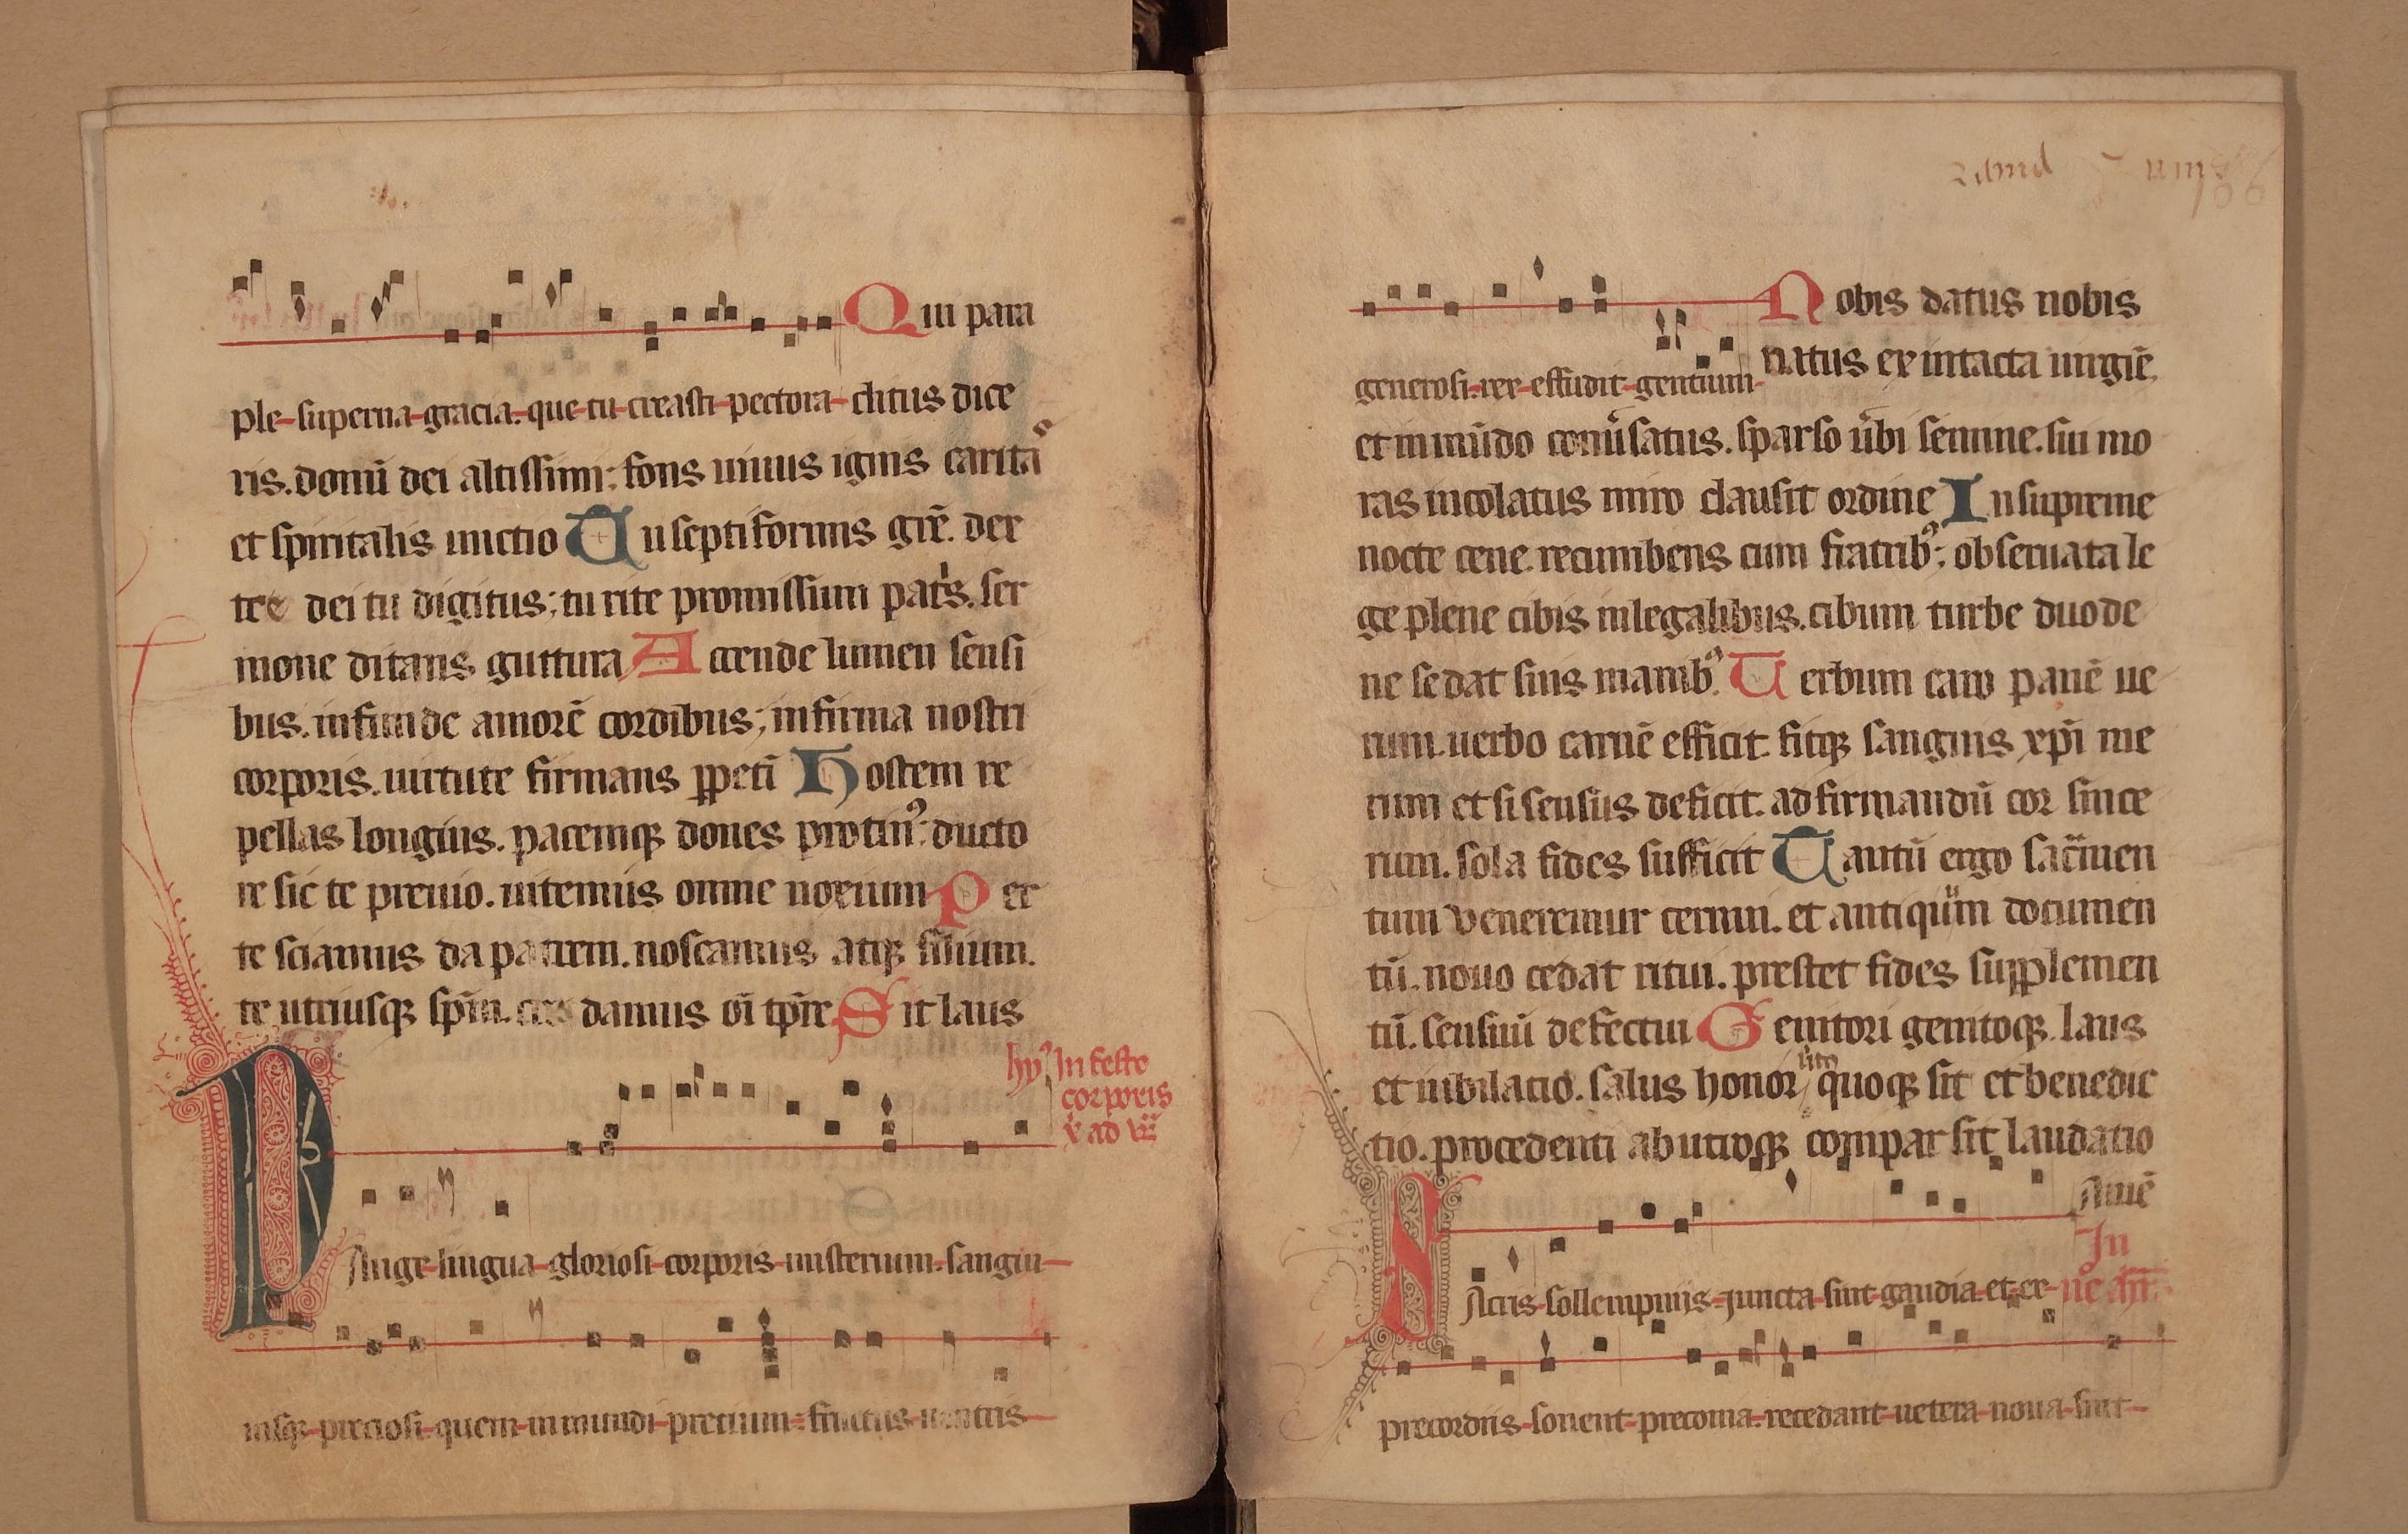 Qui para
ple superna gracia. que tu creasti pectora clitus dice
ris. donū dei altissimi; fons uiuus ignis caritaˀ
et spiritalis unctio Tu septiformis gr̄e. dex
tre dei tu digitus; tu rite promissum pat͛s. ser
mone ditans guttura Accende lumen sensi
bus. infunde amorē cordibus; infirma nostri
corporis. uirtute firmans ꝑpeti Hostem re
pellas longius. pacemqꝫ dones protinꝰ; ducto
re sic te preuio. uitemus omne noxium Per
te sciamus da patrem. noscamus atqꝫ filium.
te utriusqꝫ sp̄m. damus oī tp̄re Sit laus
hyꝰ In feste
corporis
x̄ ad
PAnge lingua gloriosi corporis misterium. sangui
nisqꝫ preciosi. quem in mundi precium. fructus uentris
Nobis datus nobis
generosi. rex effudit gentium natus ex intacta uirgīe.
et in mūdo conu͛satus. sparso u͛bi semine. sui mo
ras incolatus miro clausit ordine In supreme
nocte cene. recumbens cum fratribꝰ; obseruata le
ge plene cibis in legalibus. cibum turbe duode
ne se dat suis manibꝰ. Uerbum caro panē ue
rum. uerbo carnē efficit. fitqꝫ sanguis xp̄i me
rum et si sensus deficit. ad firmandū cor since
rum. sola fides sufficit Tantū ergo sac̄men
tum veneremur cernui. et antiquum documen
tū. nouo cedat ritui. prestet fides supplemen
tū. sensuū defectui Genitori genitoqꝫ. laus
et iubilatio. salus honor u͛tꝰ quoqꝫ sit et benedic
tio. procedenti ab utroqꝫ compar sit laudatio
Amē
In
SAcris sollempniis iuncta sint gaudia. et ex
precordiis sonent preconia. recedant uetera noua sint